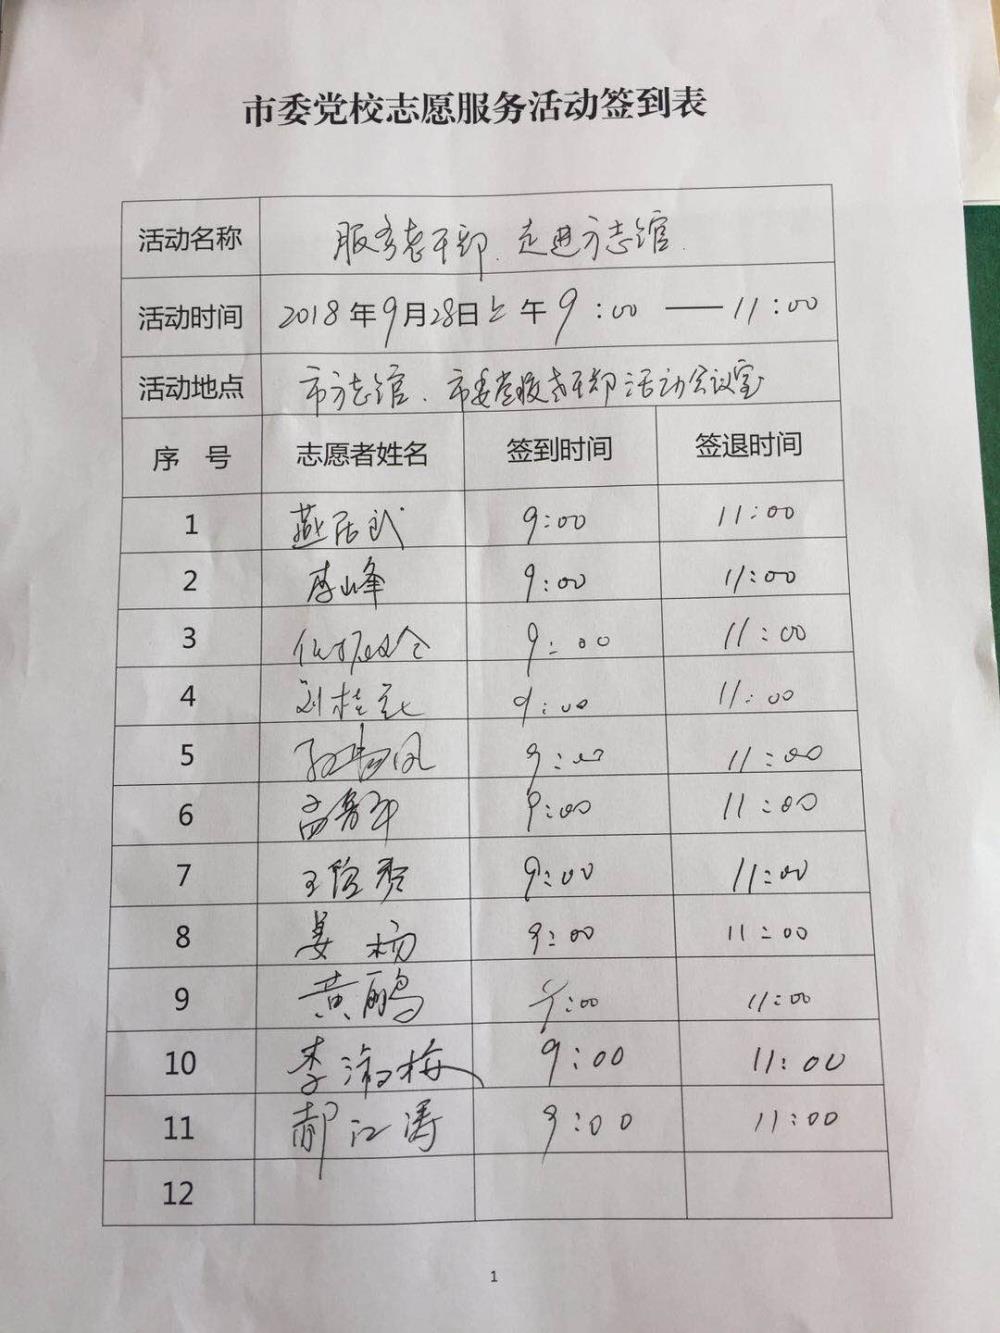 市委党校志愿服务活动签到表
活动名称 服务老干部、走进方志馆
活动时间 2018年9月28日上午9:00——11:00
活动地点 市方志馆、市委党校老干部活动会议室
序号 志愿者姓名 签到时间 签退时间
1 燕居 9:00 11:00
2 李山峰 9:00 11:00
3 9:00 11:00
4 刘桂 9:00 11:00
5 9:00 11:00
6 9:00 11:00
7 王 9:00 11:00
8 姜杨 9:00 11:00
9 黄鹏 9:00 11:00
10 李淑梅 9:00 11:00
11 郝江涛 9:00 11:00
12
1